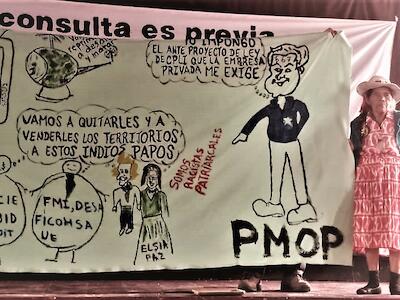 consulta es previa
YO IMPONGO
EL ANTE PROYECTO DE LEY
DE CPLI QUE LA EMPRESA
PRIVADA ME EXIGE
VAMOS A QUITARLES Y A
VENDERLES LOS TERRITORIOS
A ESTOS INDIOS PAPOS
SOMOS
RACISTAS
PATRIARCALES
CIE
BID
FMI, DESA
FICOHSA
UE
ELSIA
PAZ
PMOP